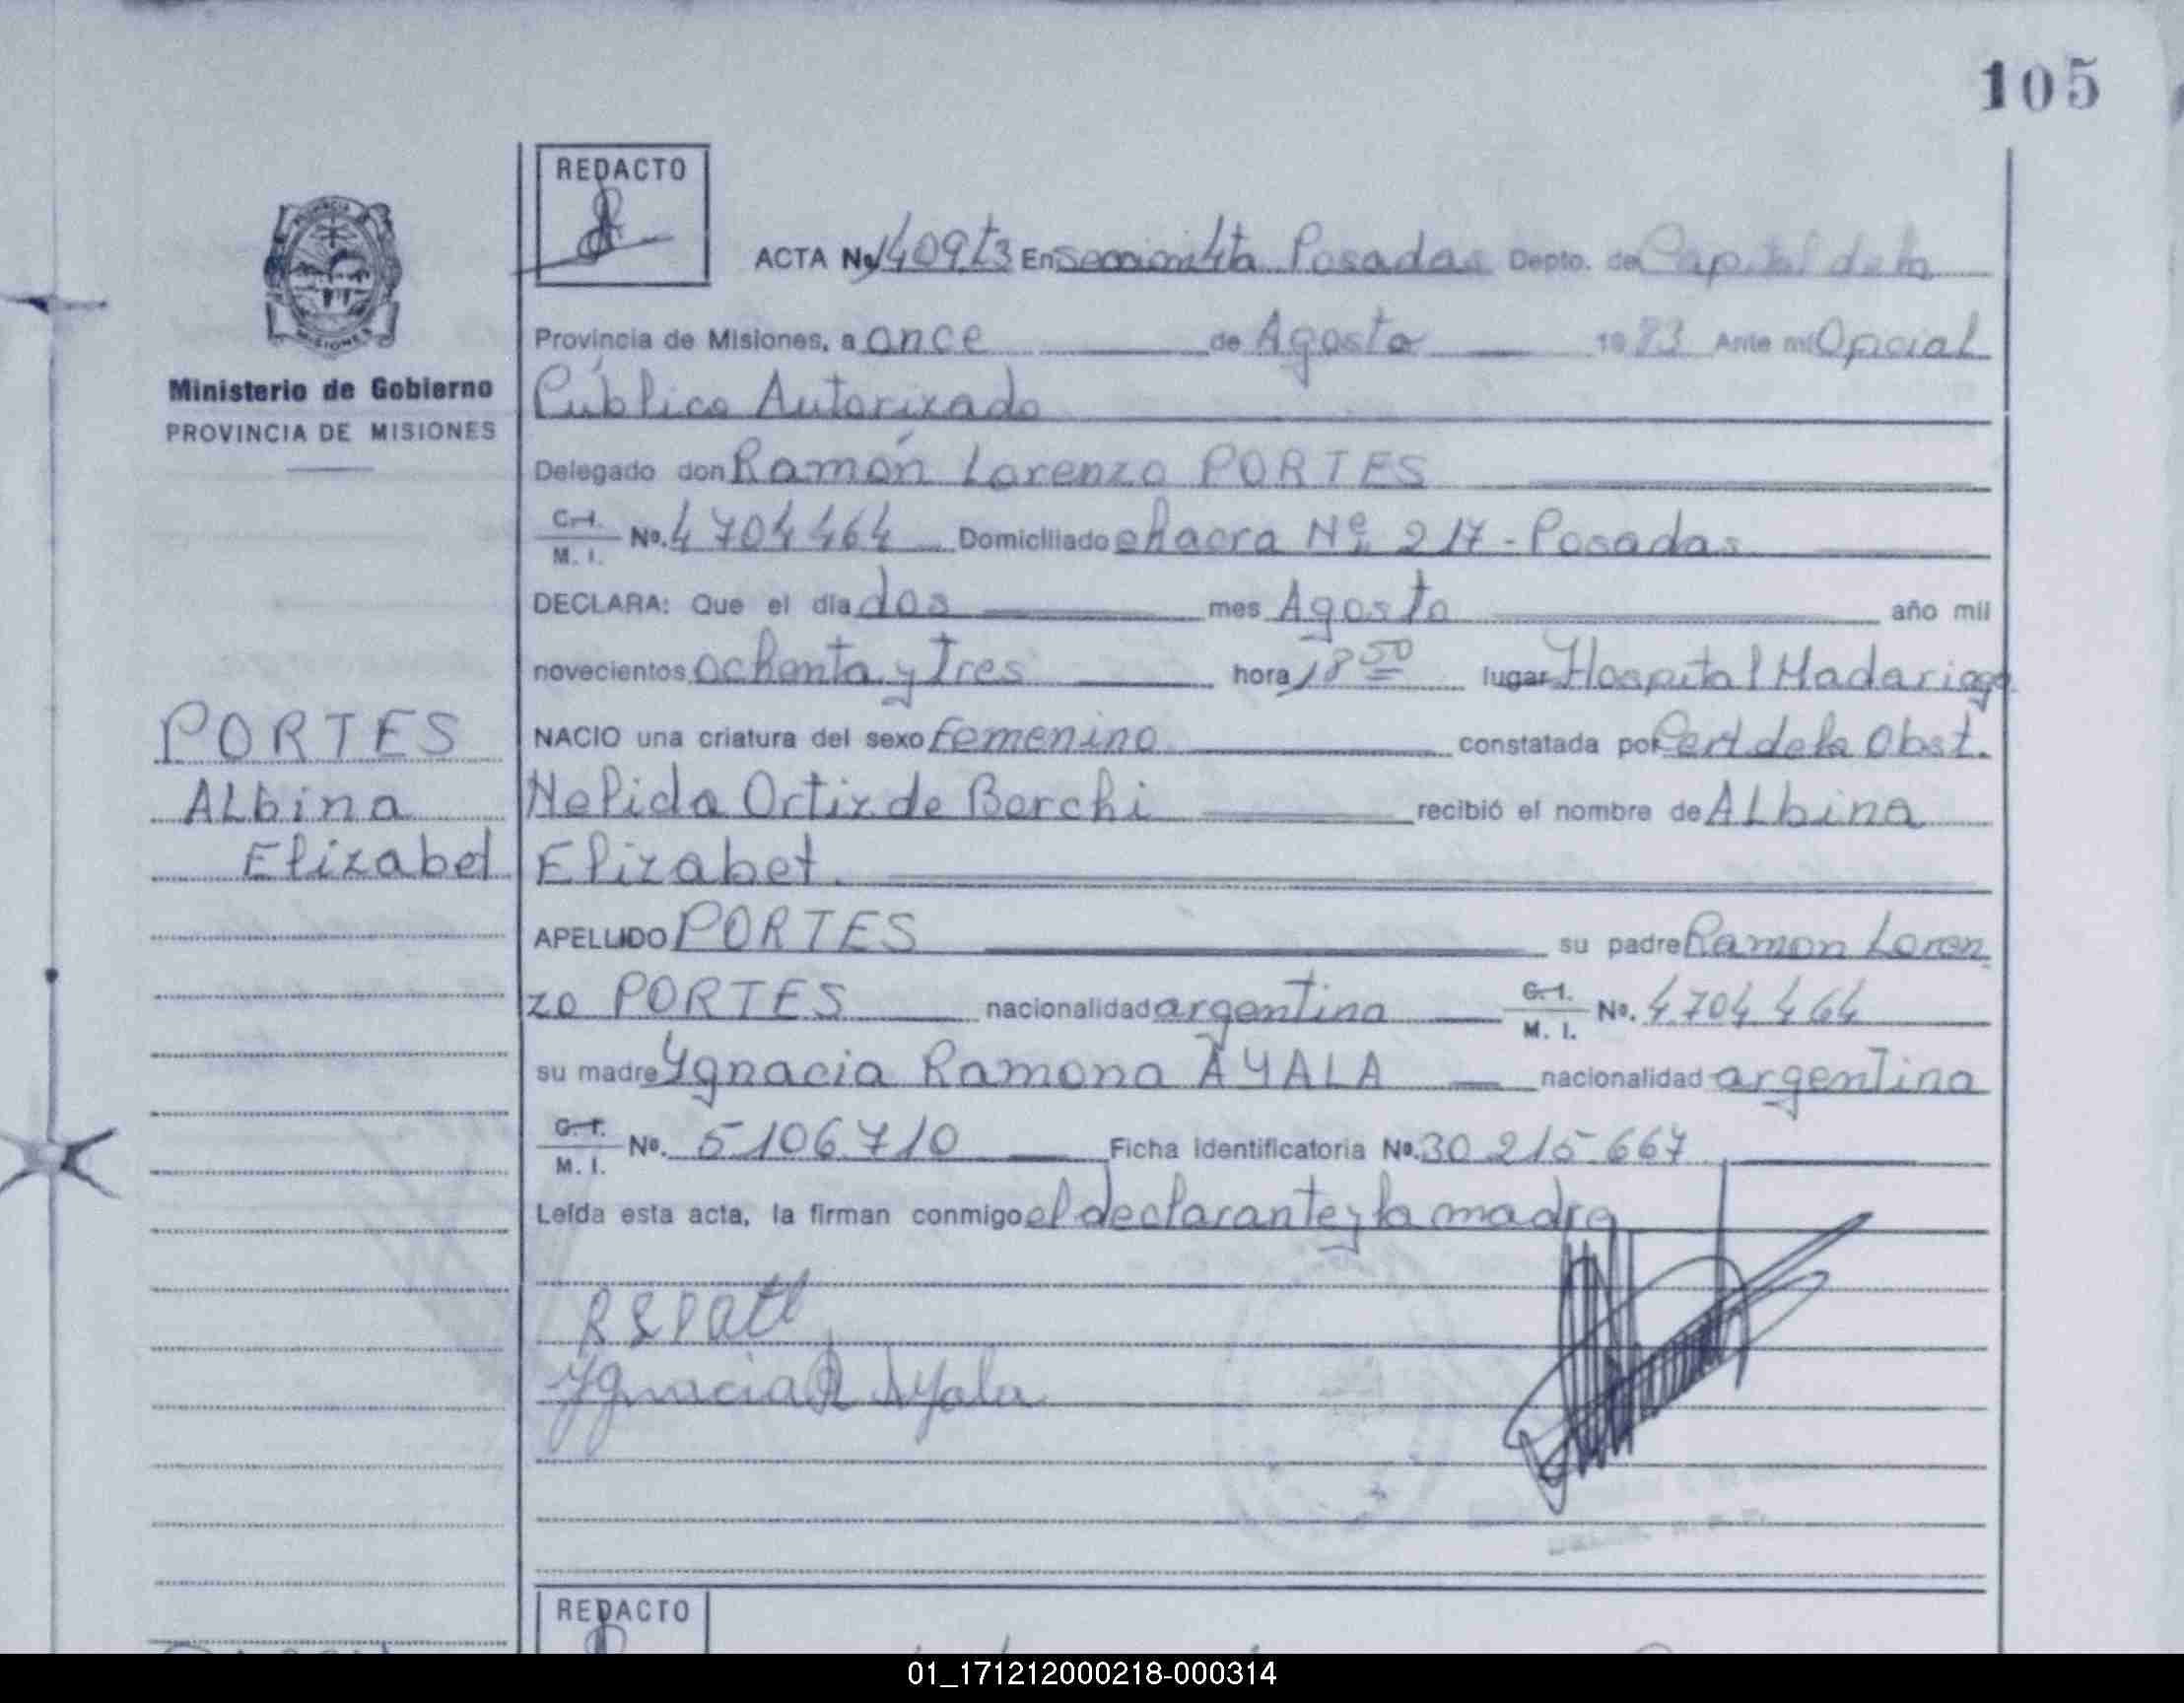 105
REDACTO
ACTA No. 1409 t3 En seccion 4ta Posadas Depto. de Capital de la
Provincia de Misiones, a once de Agosto 1983 Ante mi Oficial
Público Autorizado
Delegado don Ramón Lorenzo PORTES
C.I. M. I. No. 4704464 Domiciliado chacra Nº 217 - Posadas
DECLARA: Que el día dos mes Agosto año mil
novecientos ochenta y tres hora 18 50 lugar Hospital Madariaga
NACIO una criatura del sexo femenino constatada por Cert de la Obst.
Nelida Ortiz de Borchi recibió el nombre de ALbina
Elizabet.
APELLIDO PORTES su padre Ramon Loren
zo PORTES nacionalidad argentina C.I. M. I. No. 4704464
su madre Ygnacia Ramona AYALA nacionalidad argentina
C.I. M. I. No. 5106710 Ficha Identificatoria No. 30 215 667
Leída esta acta, la firman conmigo el declarante y la madre
Ygnacia R Ayala
PROVINCIA DE
MISIONES
Ministerio de Gobierno
PROVINCIA DE MISIONES
PORTES
ALbina
Elizabet
REDACTO
01_171212000218-000314